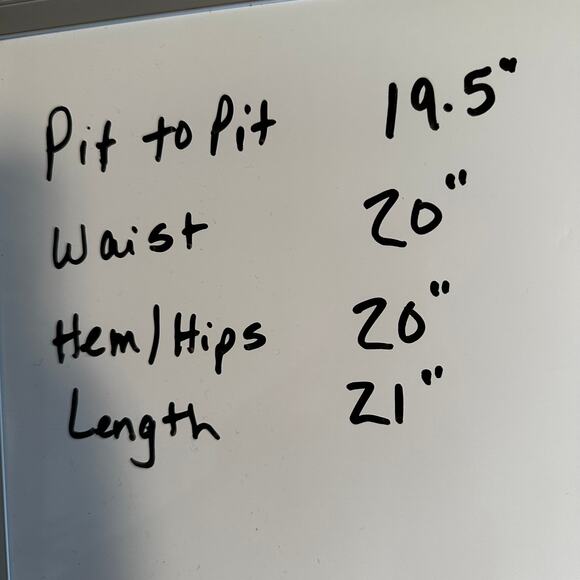 Pit to Pit 19.5"
Waist 20"
Hem/Hips 20"
Length 21"